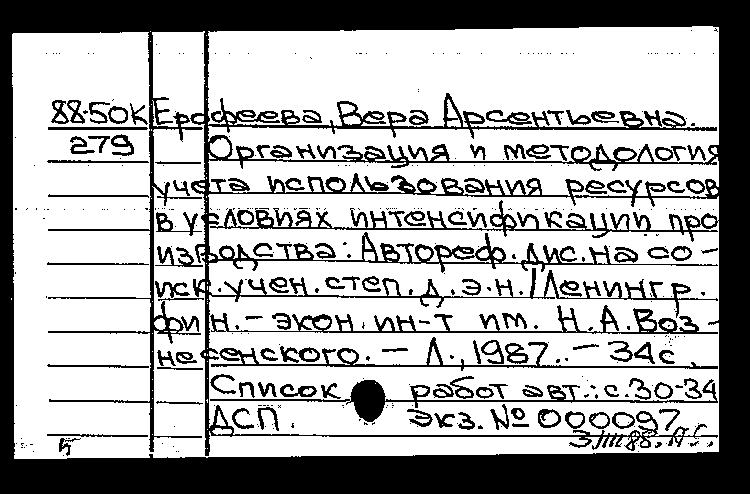 88-50К Ерофеева, Вера Арсентьевна.
279 Организация и методология
учета использования ресурсов
в условиях интенсификации про
изводства: Автореф. дис. на со-
иск. учен. степ. д. э. н. / Ленингр.
фин. - экон. ин-т им. Н. А. Воз-
несенского. - Л., 1987. - 34с.
Список работ авт.: с. 30-34
ДСП. экз. № 000097